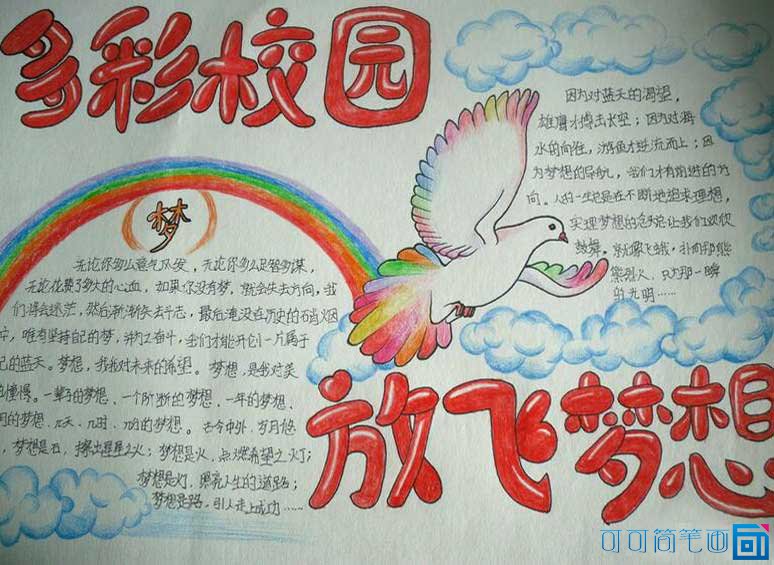 多彩校园
因为对蓝天的渴望，
雄鹰才搏击长空；因为对海
水的向往，游鱼才逆流而上；因
为梦想的导航，我们才有前进的方
向。人的一生总是在不断地追求理想，
实现梦想的念头总让我们欢欣
鼓舞。就像飞蛾，扑向那熊
熊烈火，只为那一瞬
的光明……
梦
无论你多么意气风发，无论你多么足智多谋，
无论花费了多大的心血，如果你没有梦，就会失去方向，我
们将会迷茫，然后渐渐失去斗志，最后淹没在历史的硝烟
中，唯有坚持自己的梦，并为之奋斗，我们才能开创一片属于
己的蓝天。梦想，我我对未来的希望。梦想，是我对美
的憧憬。一辈子的梦想、一个阶段的梦想、一年的梦想、
月的梦想、几天、几时、几分的梦想。古今中外，岁月悠
，梦想是石，擦出星星之火；梦想是火，点燃希望之灯；
梦想是灯，照亮人生的道路；
梦想是路，引人走上成功……
放飞梦想
可可简笔画